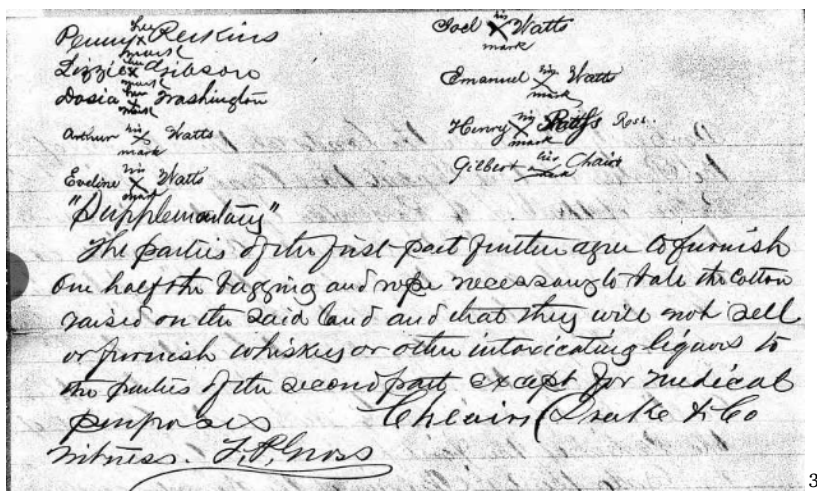 Penny her x mark Perkins
Lizzie her x mark Gibson
Dosia her x mark Washington
Arthur his X mark Watts
Eveline his X mark Watts
Joel his X Watts mark
Emanuel his X Watts mark
Henry his X mark
Gilbert his mark Chairs
"Supplementary"
The parties of the first part further agree to furnish
One half the bagging and rope necessary to bale the Cotton
raised on the said land and that they will not sell
or furnish whiskey or other intoxicating liquors to
the parties of the second part except for medical
purposes Cheairs Drake & Co
Witness.
3